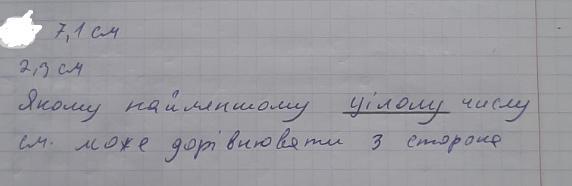 7,1 см
2,3 см
Якому найменшому цілому числу
см. може дорівнювати 3 сторона